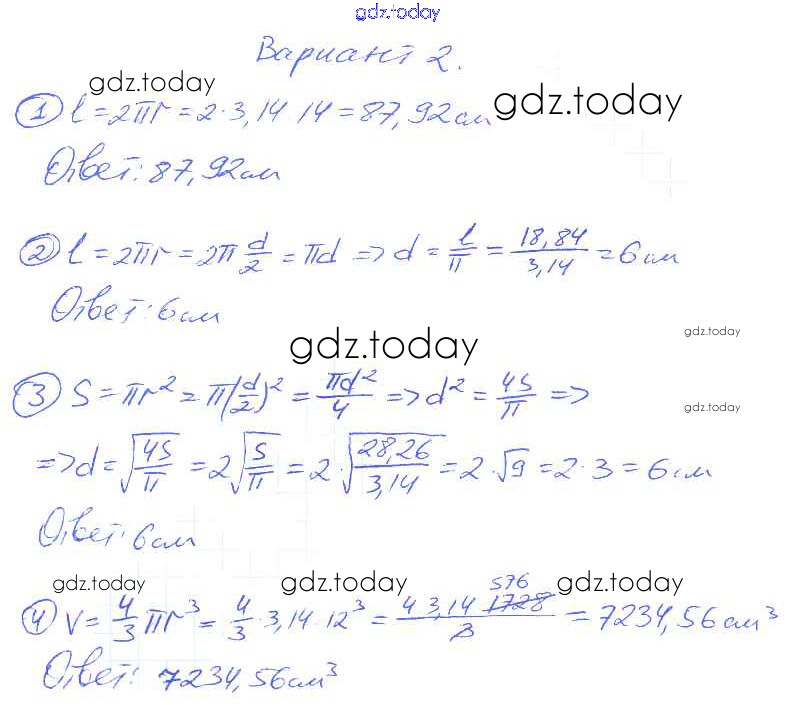 gdz.today
Вариант 2.
gdz.today
① l = 2πr = 2·3,14·14 = 87,92см
gdz.today
Ответ: 87,92см
② l = 2πr = 2π d/2 = πd => d = l/π = 18,84/3,14 = 6см
Ответ: 6см
gdz.today
gdz.today
③ S = πr² = π(d/2)² = πd²/4 => d² = 4S/π =>
gdz.today
=> d = √(4S/π) = 2√(S/π) = 2·√(28,26/3,14) = 2·√9 = 2·3 = 6см
Ответ: 6см
gdz.today
gdz.today
gdz.today
576
④ V = 4/3 πr³ = 4/3 · 3,14·12³ = 4 3,14 1728/3 = 7234,56см³
Ответ: 7234,56см³